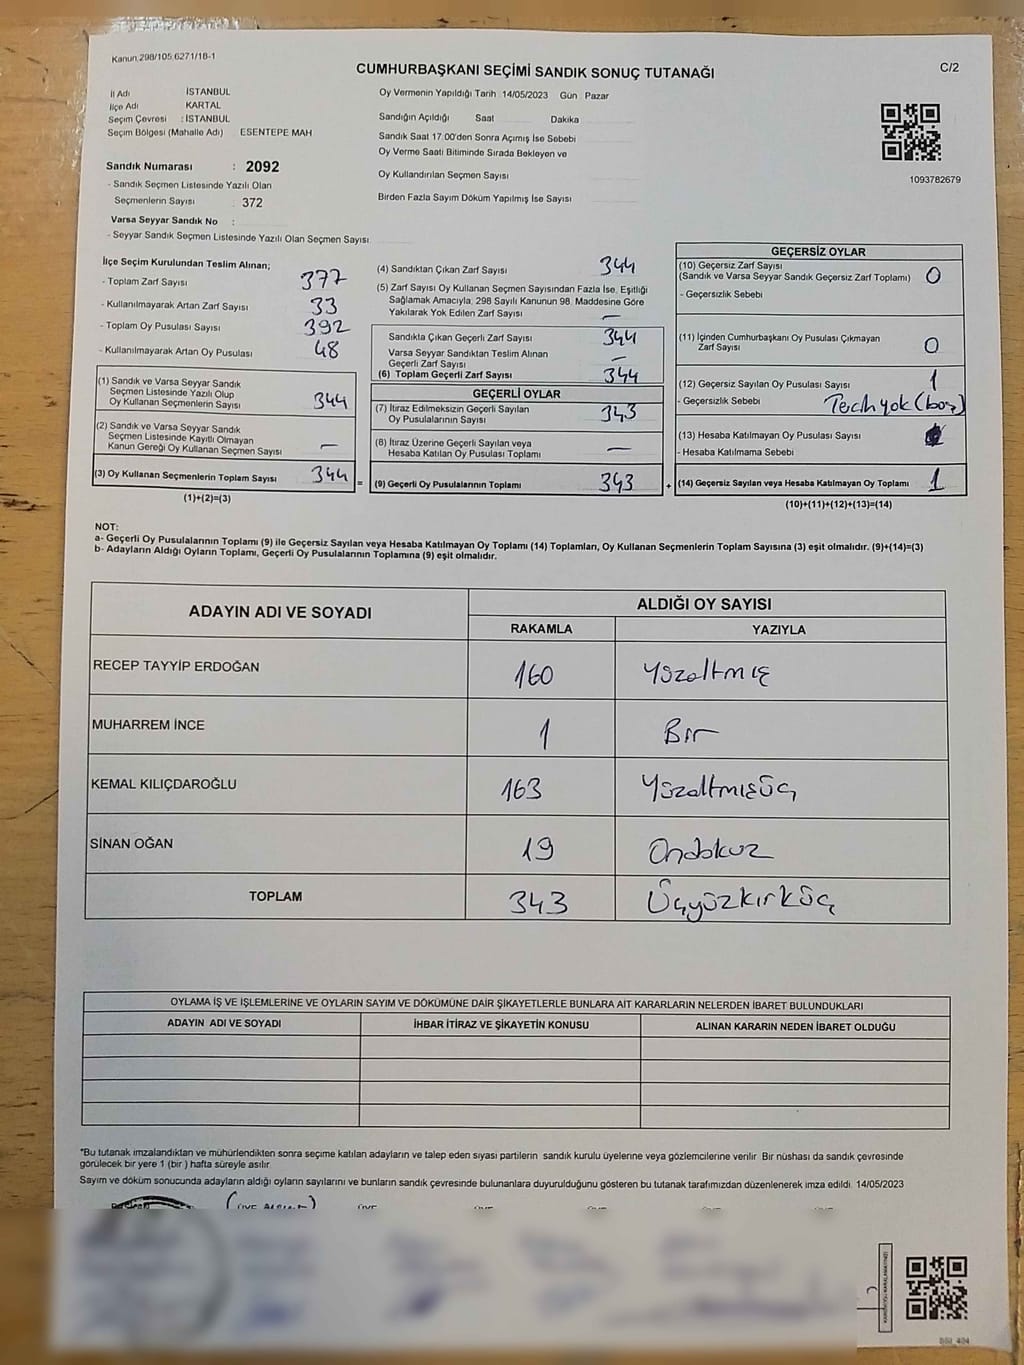 Kanun.298/105,6271/18-1
CUMHURBAŞKANI SEÇİMİ SANDIK SONUÇ TUTANAĞI
C/2
İl Adı İSTANBUL
İlçe Adı KARTAL
Seçim Çevresi : İSTANBUL
Seçim Bölgesi (Mahalle Adı) ESENTEPE MAH
Sandık Numarası : 2092
- Sandık Seçmen Listesinde Yazılı Olan
Seçmenlerin Sayısı : 372
Varsa Seyyar Sandık No :
- Seyyar Sandık Seçmen Listesinde Yazılı Olan Seçmen Sayısı
Oy Vermenin Yapıldığı Tarih 14/05/2023 Gün Pazar
Sandığın Açıldığı Saat Dakika
Sandık Saat 17.00'den Sonra Açımış İse Sebebi
Oy Verme Saati Bitiminde Sırada Bekleyen ve
Oy Kullandırılan Seçmen Sayısı
Birden Fazla Sayım Döküm Yapılmış İse Sayısı
1093782679
İlçe Seçim Kurulundan Teslim Alınan;
- Toplam Zarf Sayısı 377
- Kullanılmayarak Artan Zarf Sayısı 33
- Toplam Oy Pusulası Sayısı 392
- Kullanılmayarak Artan Oy Pusulası 48
(1) Sandık ve Varsa Seyyar Sandık
Seçmen Listesinde Yazılı Olup
Oy Kullanan Seçmenlerin Sayısı 344
(2) Sandık ve Varsa Seyyar Sandık
Seçmen Listesinde Kayıtlı Olmayan
Kanun Gereği Oy Kullanan Seçmen Sayısı —
(3) Oy Kullanan Seçmenlerin Toplam Sayısı 344 =
(1)+(2)=(3)
(4) Sandıktan Çıkan Zarf Sayısı 344
(5) Zarf Sayısı Oy Kullanan Seçmen Sayısından Fazla İse, Eşitliği
Sağlamak Amacıyla; 298 Sayılı Kanunun 98. Maddesine Göre
Yakılarak Yok Edilen Zarf Sayısı —
Sandıkta Çıkan Geçerli Zarf Sayısı 344
Varsa Seyyar Sandıktan Teslim Alınan
Geçerli Zarf Sayısı —
(6) Toplam Geçerli Zarf Sayısı 344
GEÇERLİ OYLAR
(7) İtiraz Edilmeksizin Geçerli Sayılan
Oy Pusulalarının Sayısı 343
(8) İtiraz Üzerine Geçerli Sayılan veya
Hesaba Katılan Oy Pusulası Toplamı —
(9) Geçerli Oy Pusulalarının Toplamı 343 +
GEÇERSİZ OYLAR
(10) Geçersiz Zarf Sayısı
(Sandık ve Varsa Seyyar Sandık Geçersiz Zarf Toplamı) 0
- Geçersizlik Sebebi
(11) İçinden Cumhurbaşkanı Oy Pusulası Çıkmayan
Zarf Sayısı 0
(12) Geçersiz Sayılan Oy Pusulası Sayısı 1
- Geçersizlik Sebebi Tercih yok (boş)
(13) Hesaba Katılmayan Oy Pusulası Sayısı
- Hesaba Katılmama Sebebi
(14) Geçersiz Sayılan veya Hesaba Katılmayan Oy Toplamı 1
(10)+(11)+(12)+(13)=(14)
NOT:
a- Geçerli Oy Pusulalarının Toplamı (9) ile Geçersiz Sayılan veya Hesaba Katılmayan Oy Toplamı (14) Toplamları, Oy Kullanan Seçmenlerin Toplam Sayısına (3) eşit olmalıdır. (9)+(14)=(3)
b- Adayların Aldığı Oyların Toplamı, Geçerli Oy Pusulalarının Toplamına (9) eşit olmalıdır.
ADAYIN ADI VE SOYADI ALDIĞI OY SAYISI
RAKAMLA YAZIYLA
RECEP TAYYİP ERDOĞAN 160 Yüzaltmış
MUHARREM İNCE 1 Bir
KEMAL KILIÇDAROĞLU 163 Yüzaltmışüç
SİNAN OĞAN 19 Ondokuz
TOPLAM 343 Üçyüzkırküç
OYLAMA İŞ VE İŞLEMLERİNE VE OYLARIN SAYIM VE DÖKÜMÜNE DAİR ŞİKAYETLERLE BUNLARA AİT KARARLARIN NELERDEN İBARET BULUNDUKLARI
ADAYIN ADI VE SOYADI İHBAR İTİRAZ VE ŞİKAYETİN KONUSU ALINAN KARARIN NEDEN İBARET OLDUĞU
*Bu tutanak imzalandıktan ve mühürlendikten sonra seçime katılan adayların ve talep eden siyasi partilerin sandık kurulu üyelerine veya gözlemcilerine verilir Bir nüshası da sandık çevresinde
görülecek bir yere 1 (bir) hafta süreyle asılır.
Sayım ve döküm sonucunda adayların aldığı oyların sayılarını ve bunların sandık çevresinde bulunanlara duyurulduğunu gösteren bu tutanak tarafımızdan düzenlenerek imza edildi. 14/05/2023